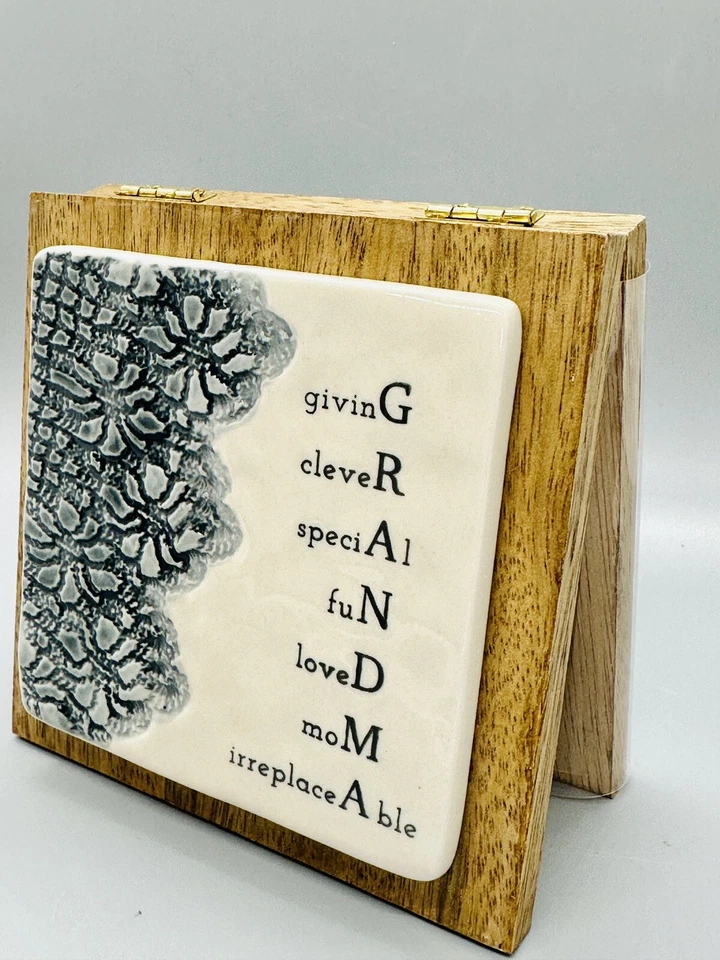 givinG
cleveR
speciAl
fuN
loveD
moM
irreplaceAble